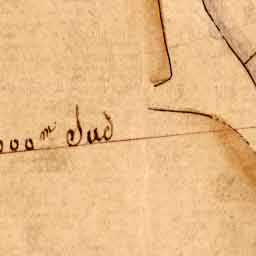 000ᵐ Sud